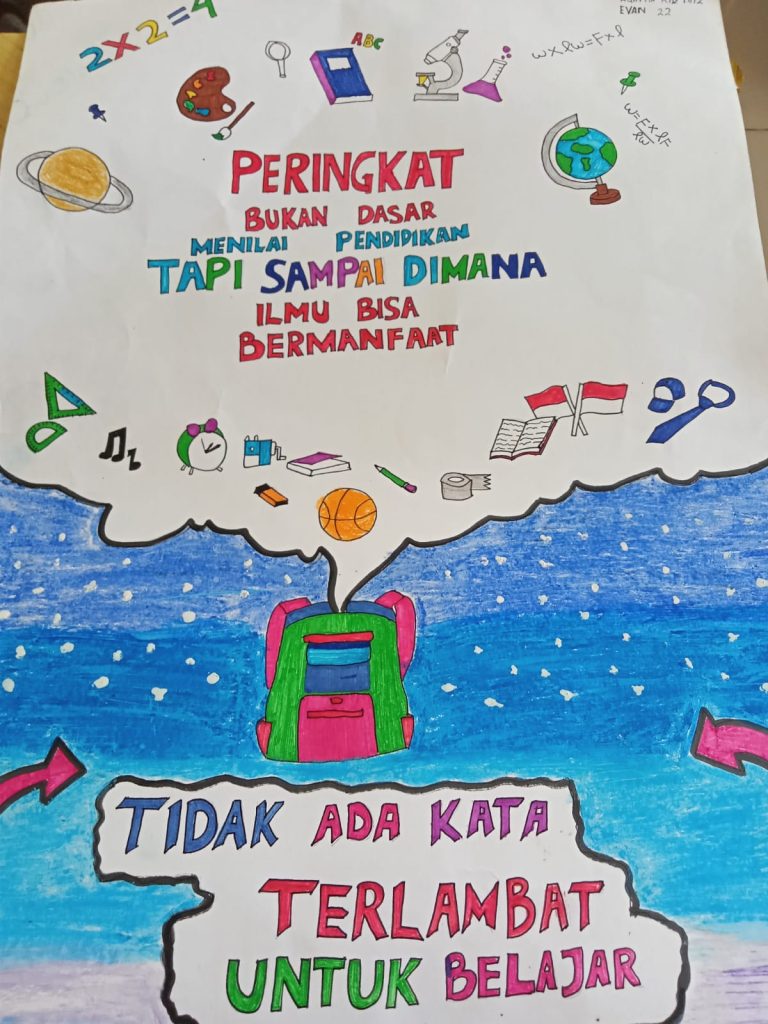 EVAN 22
2x2=4
ABC
w x lw = F x l
w = F x lF
lw
PERINGKAT
BUKAN DASAR
MENILAI PENDIDIKAN
TAPI SAMPAI DIMANA
ILMU BISA
BERMANFAAT
TIDAK ADA KATA
TERLAMBAT
UNTUK BELAJAR